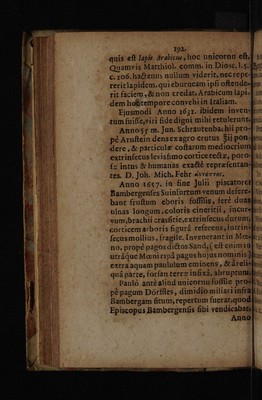 192.
quis est lapis Arabicus, hoc unicornu est.
Quamvis Matthiol. comm. in Diosc. l. 5.
c. 106. hactenus nullum viderit, nec repe-
rerit lapidem, qui eburneam ipsi ostende-
rit faciem, & non credat, Arabicum lapi-
dem hoc tempore convehi in Italiam.
Ejusmodi Anno 1631. ibidem inven-
tum fuisse, viri fide digni mihi retulerunt.
Anno 57 m. Jun. Schrautenbachii pro-
pè Arnstein dens ex agro erutus ℥ii pon-
dere, & particulæ costarum mediocrium
extrinsecus levissimo cortice tectæ, poro-
sæ intus & humanas exactè repræsentan-
tes. D. Joh. Mich. Fehr
Anno 1657. in fine Julii piscatores
Bambergenses Suinfurtum venum defere-
bant frustum eboris fossilis, ferè duas
ulnas longum, coloris cineritii, incur-
vum, brachii crassitie, extrinsecus durum,
corticem arboris figurâ referens, intrin-
secus mollius, fragile. Invenerant in Mœ-
no, propè pagos dictos Sand, (est enim in
utrâque Mœni ripâ pagus hujus nominis)
extra aquam paululum eminens, & à reli-
quâ parte, forsan terræ infixâ, abruptum.
Pauló ante aliud unicornu fossile pro-
pè pagum Dörffles, dimidio miliari infra
Bambergam situm, repertum fuerat, quod
Episcopus Bambergensis sibi vendicabat.
Anno